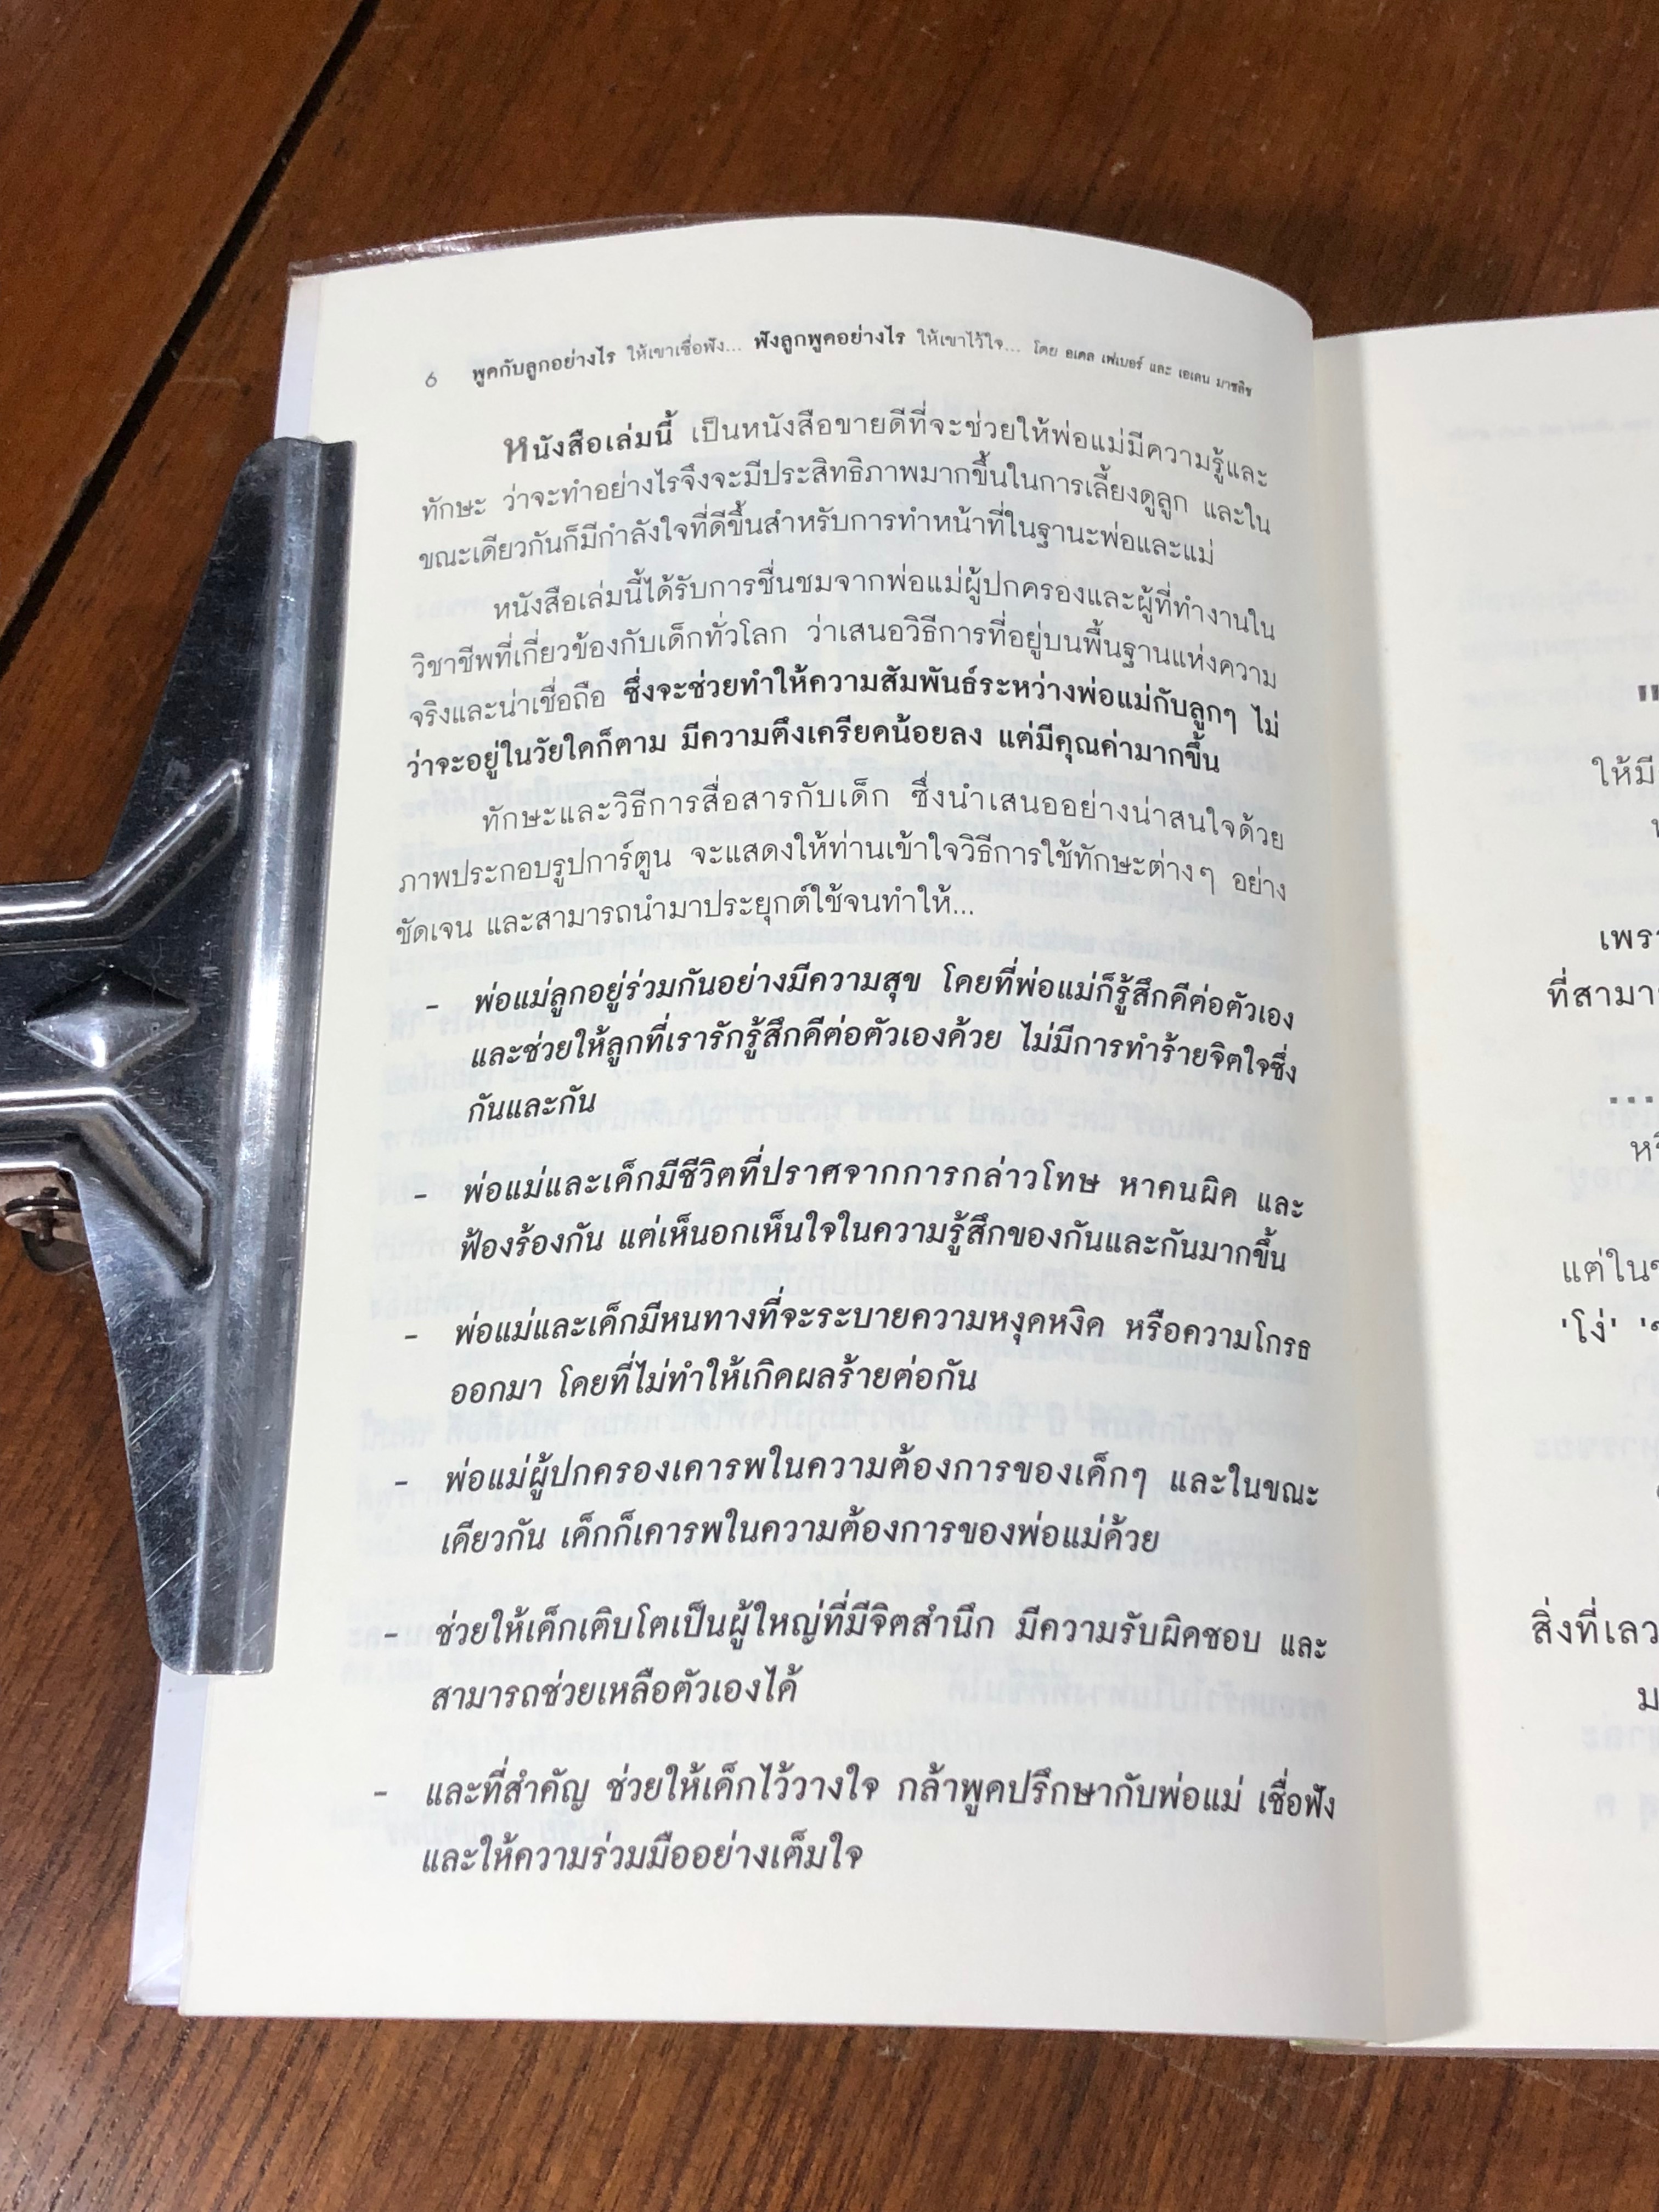 6 พูดกับลูกอย่างไร ให้เขาเชื่อฟัง... ฟังลูกพูดอย่างไร ให้เขาไว้ใจ... โดย อเดล เฟเบอร์ และ เอเลน มาซลิช
หนังสือเล่มนี้ เป็นหนังสือขายดีที่จะช่วยให้พ่อแม่มีความรู้และ
ทักษะ ว่าจะทำอย่างไรจึงจะมีประสิทธิภาพมากขึ้นในการเลี้ยงดูลูก และใน
ขณะเดียวกันก็มีกำลังใจที่ดีขึ้นสำหรับการทำหน้าที่ในฐานะพ่อและแม่
หนังสือเล่มนี้ได้รับการชื่นชมจากพ่อแม่ผู้ปกครองและผู้ที่ทำงานใน
วิชาชีพที่เกี่ยวข้องกับเด็กทั่วโลก ว่าเสนอวิธีการที่อยู่บนพื้นฐานแห่งความ
จริงและน่าเชื่อถือ ซึ่งจะช่วยทำให้ความสัมพันธ์ระหว่างพ่อแม่กับลูกๆ ไม่
ว่าจะอยู่ในวัยใดก็ตาม มีความตึงเครียดน้อยลง แต่มีคุณค่ามากขึ้น
ทักษะและวิธีการสื่อสารกับเด็ก ซึ่งนำเสนออย่างน่าสนใจด้วย
ภาพประกอบรูปการ์ตูน จะแสดงให้ท่านเข้าใจวิธีการใช้ทักษะต่างๆ อย่าง
ชัดเจน และสามารถนำมาประยุกต์ใช้จนทำให้...
- พ่อแม่ลูกอยู่ร่วมกันอย่างมีความสุข โดยที่พ่อแม่ก็รู้สึกดีต่อตัวเอง
และช่วยให้ลูกที่เรารักรู้สึกดีต่อตัวเองด้วย ไม่มีการทำร้ายจิตใจซึ่ง
กันและกัน
- พ่อแม่และเด็กมีชีวิตที่ปราศจากการกล่าวโทษ หาคนผิด และ
ฟ้องร้องกัน แต่เห็นอกเห็นใจในความรู้สึกของกันและกันมากขึ้น
- พ่อแม่และเด็กมีหนทางที่จะระบายความหงุดหงิด หรือความโกรธ
ออกมา โดยที่ไม่ทำให้เกิดผลร้ายต่อกัน
- พ่อแม่ผู้ปกครองเคารพในความต้องการของเด็กๆ และในขณะ
เดียวกัน เด็กก็เคารพในความต้องการของพ่อแม่ด้วย
- ช่วยให้เด็กเติบโตเป็นผู้ใหญ่ที่มีจิตสำนึก มีความรับผิดชอบ และ
สามารถช่วยเหลือตัวเองได้
- และที่สำคัญ ช่วยให้เด็กไว้วางใจ กล้าพูดปรึกษากับพ่อแม่ เชื่อฟัง
และให้ความร่วมมืออย่างเต็มใจ
"
ให้มี
เพรา
ที่สามา
...
แต่ใน
'โง่'
สิ่งที่เลว